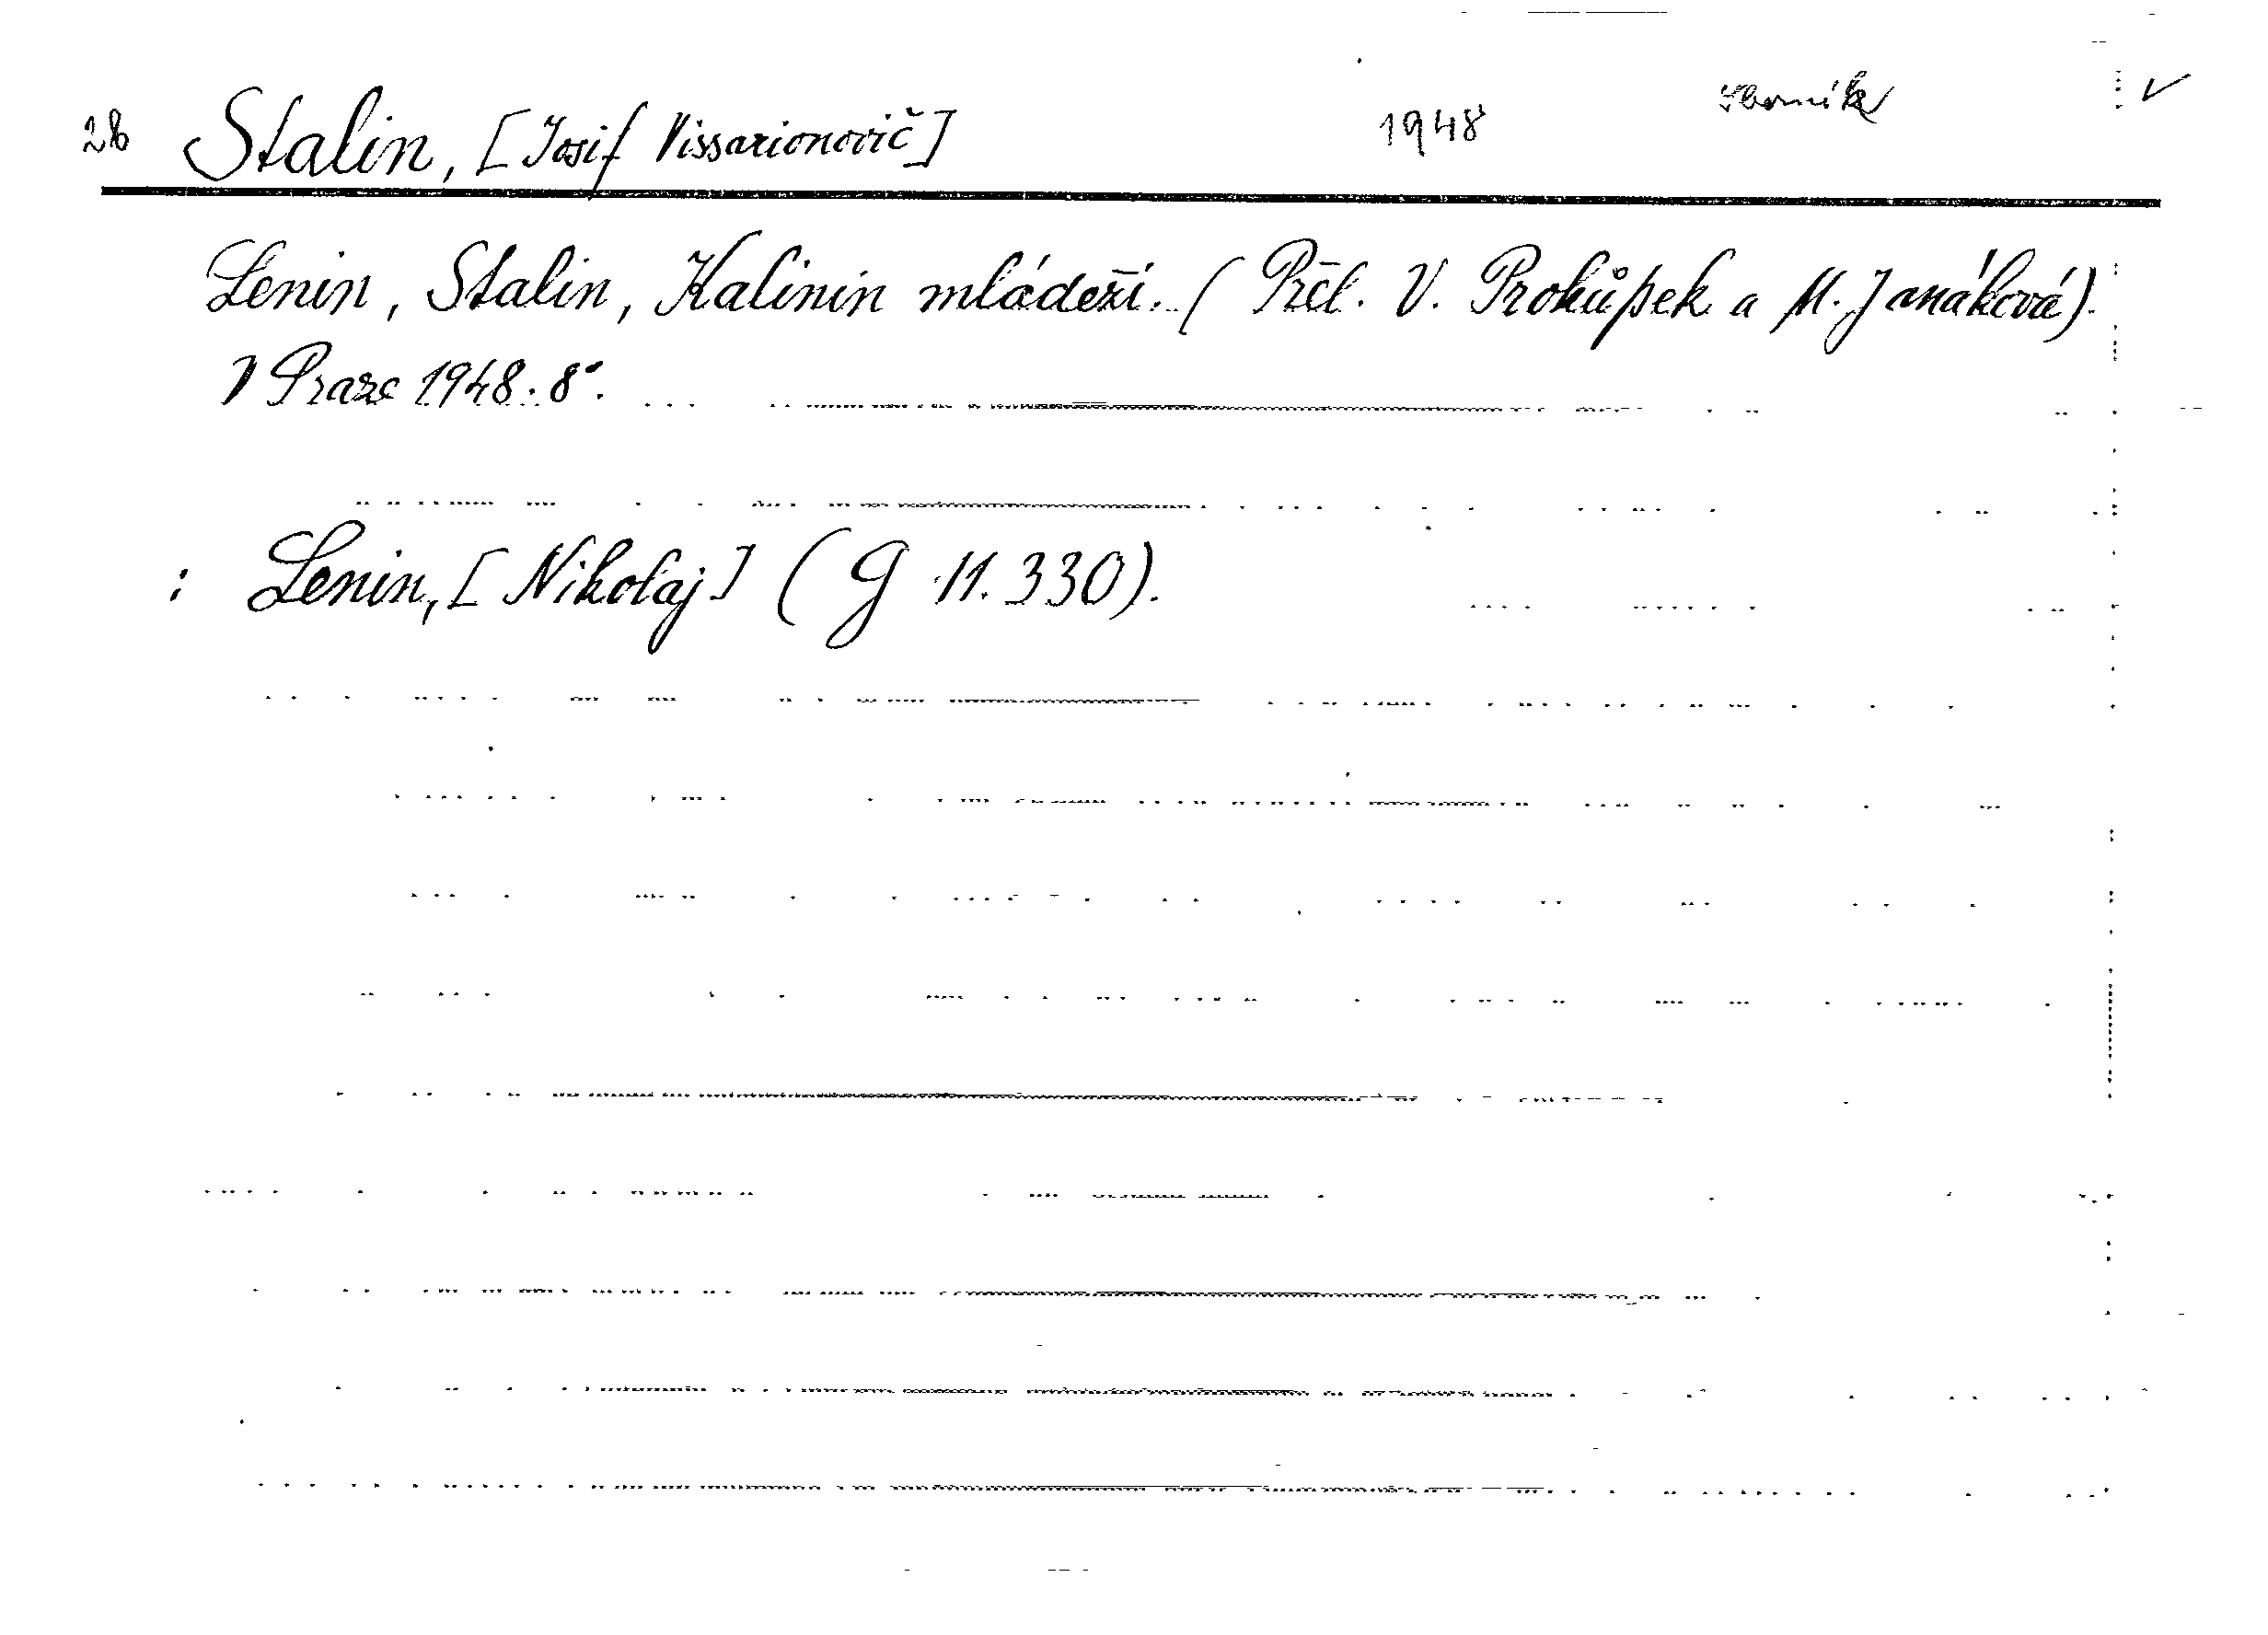 28 Stalin, [Josif Vissarionovič] 1948 sborník ✓
Lenin, Stalin, Kalinin mládeži. (Přel. V. Prokůpek a M. Janáková).
V Praze 1948. 8°.
: Lenin, [Nikolaj] (G 11.330).